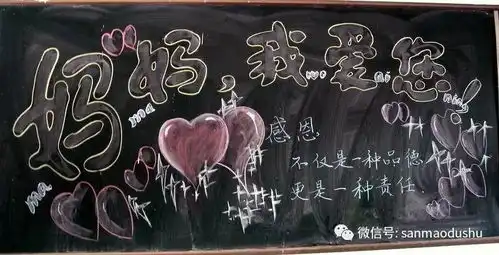 妈妈，我爱您！
ma ma wo ai nin
感恩
不仅是一种品德
更是一种责任
微信号: sanmaodushu